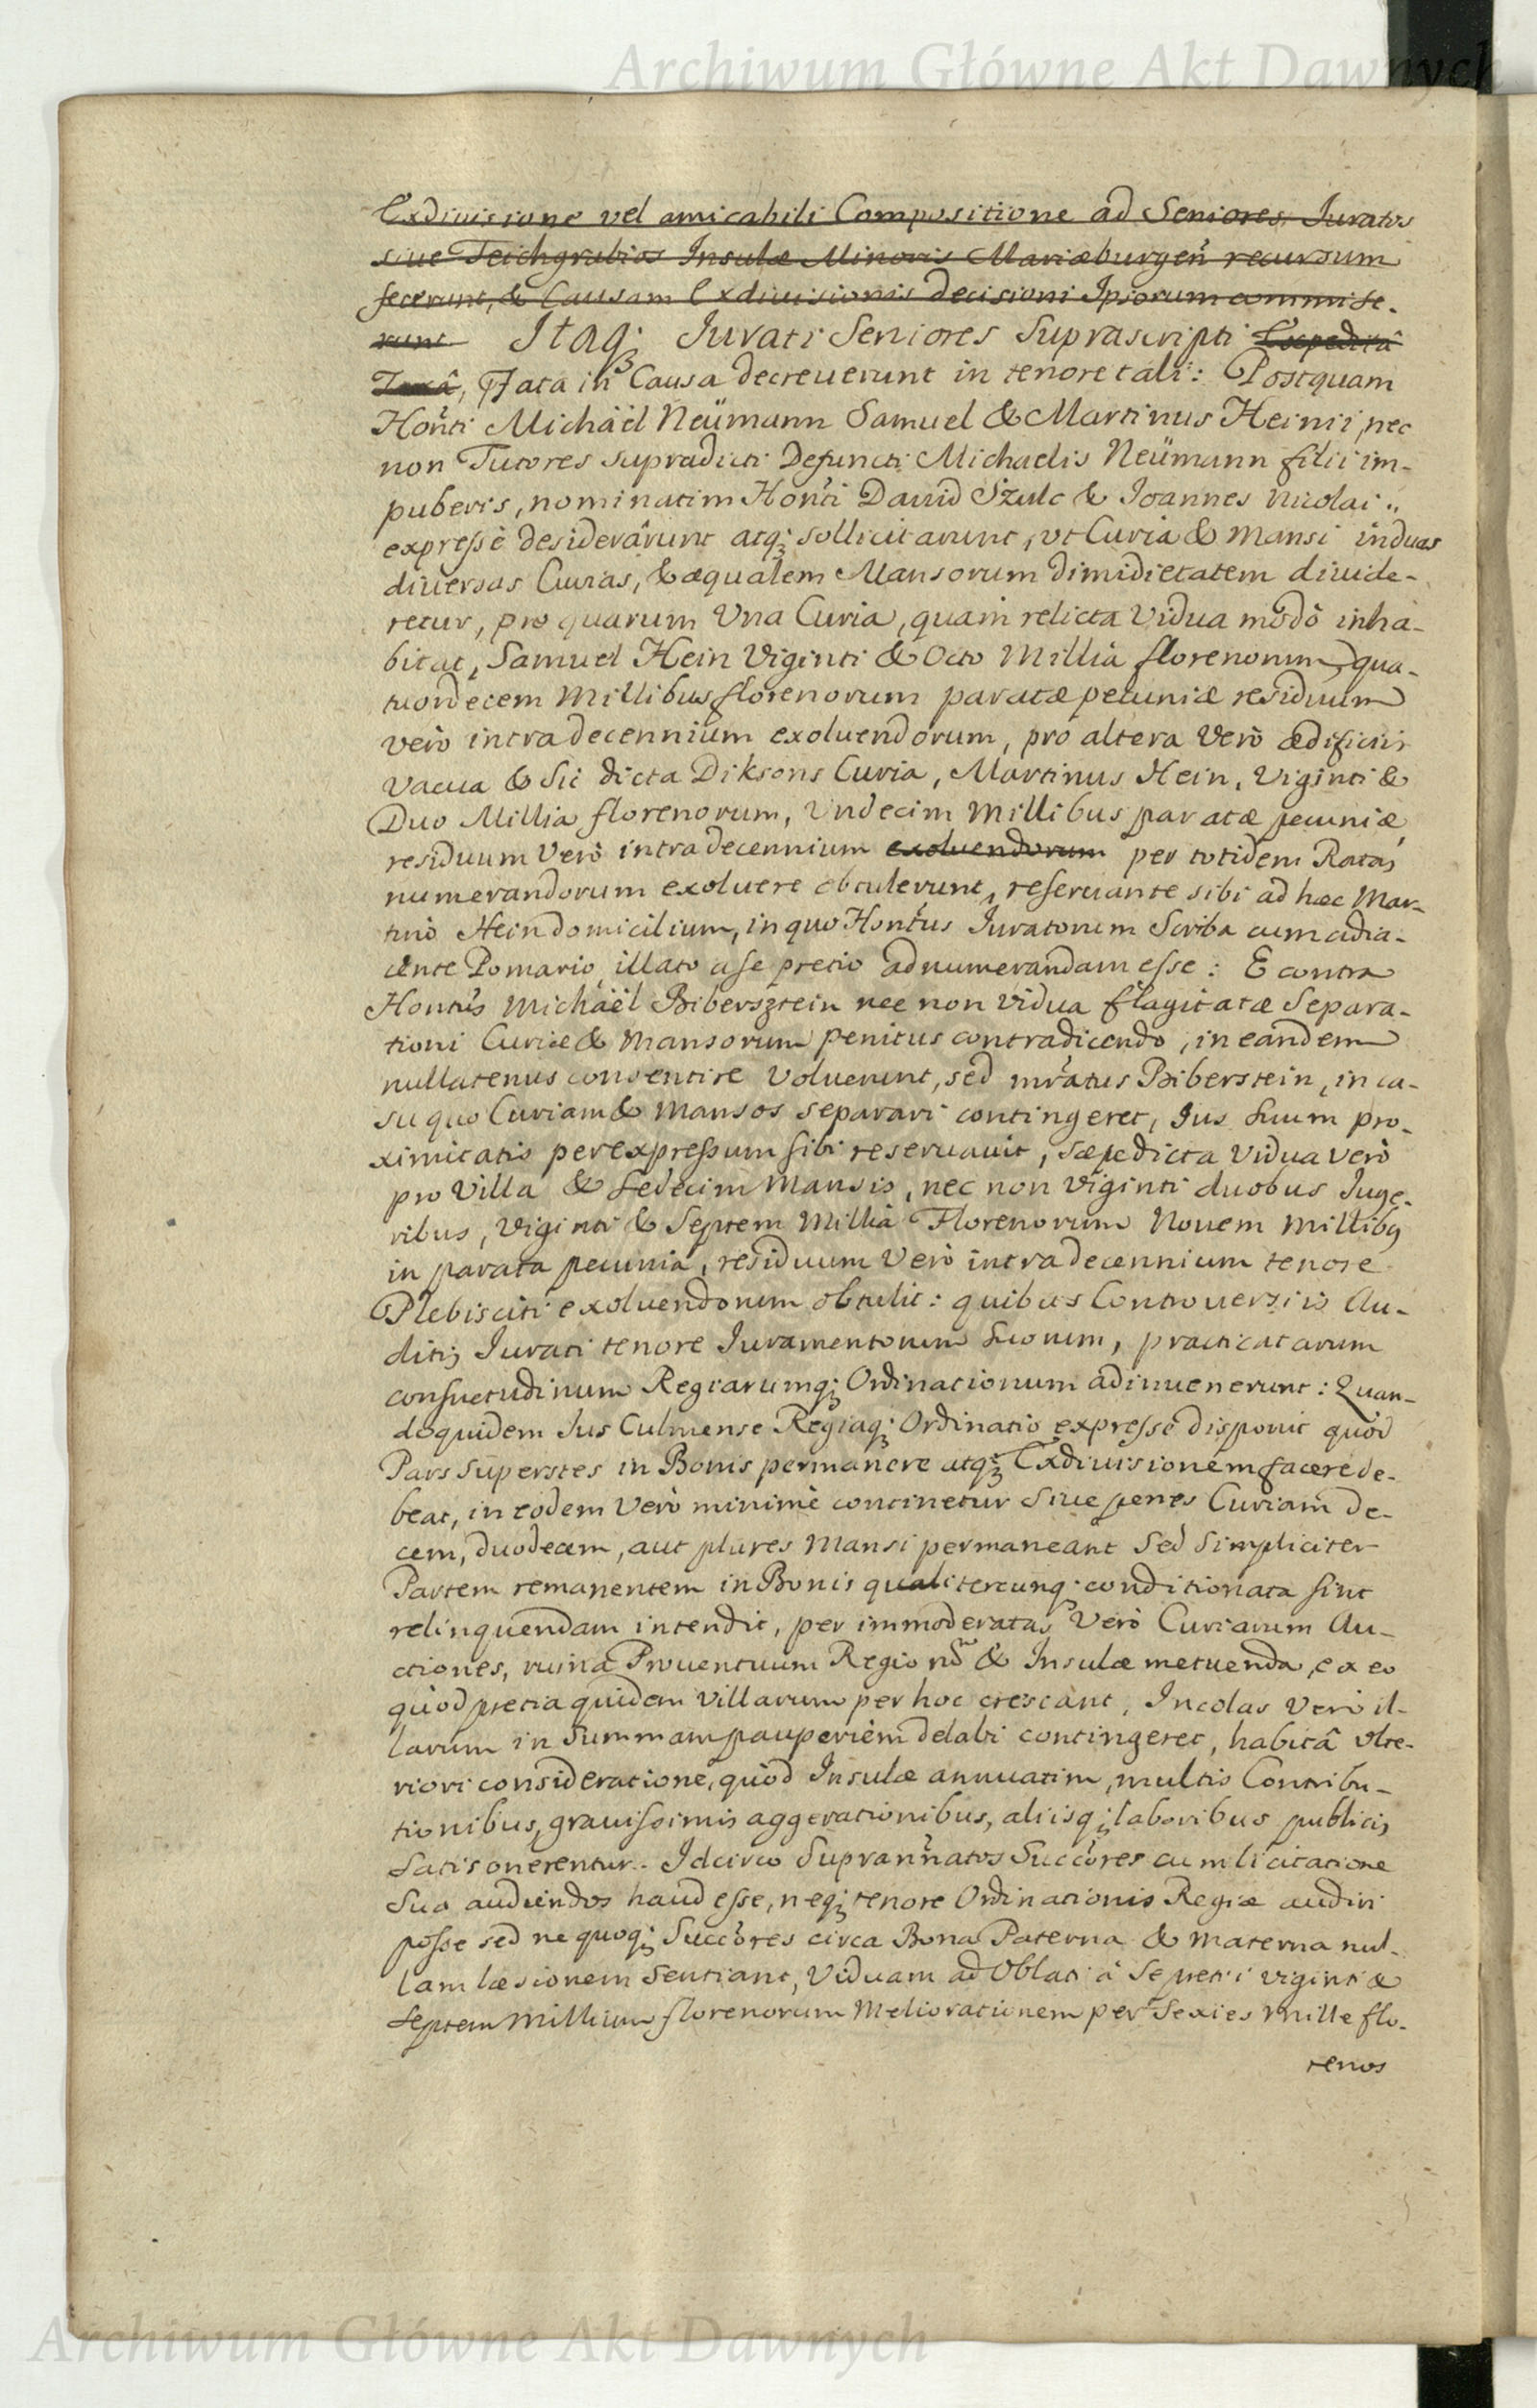 Archiwum Główne Akt Dawnych
Exdiuisione vel amicabili Compositione ad Seniores Iuratos
siue Teichgrabios Insulæ Minoris Mariæburgeñ recursum
fecerunt, & Causam Exdiuisionis decisioni Ipsorum commise-
runt. Itaq; Iurati Seniores Suprascripti Expeditâ
Taxâ, Ffata in Causa decreuerunt in tenore tali: Postquam
Honti Michäel Neümann Samuel & Martinus Heinii, nec
non Tutores supradicti Defuncti Michaelis Neümann filii im-
puberis, nominatim Honti Dauid Szulc & Ioannes Nicolai,,
expressè desiderârunt atq; sollicitarunt, vt Curia & Mansi in duas
diuersas Curias, & æqualem Mansorum dimidietatem diuide-
retur, pro quarum Una Curia, quam relicta Vidua modò inha-
bitat, Samuel Hein Viginti & Octo Millia florenorum, qua-
tuordecem Millibus florenorum paratæ pecuniæ residuum
verò intra decennium exoluendorum, pro altera Verò ædificiis
Vacua & Sic dicta Diksons Curia, Martinus Hein, Viginti &
Duo Millia florenorum, Undecim Millibus paratæ pecuniæ,
residuum Verò intra decennium exoluendorum per totidem Ratas
numerandorum exoluere obtulerunt, reseruante sibi ad hæc Mar-
tino Hein domicilium, in quo Hontus Iuratorum Scriba cum adia-
cente Pomario, illato a se pretio adnumerandam esse: E contra
Hontus Michäel Bibersztein nec non Vidua flagitatæ Separa-
tioni Curiæ & Mansorum penitus contradicendo, in eandem
nullatenus consentire Voluerunt, sed mratus Biberstein, in ca-
su quo Curiam & Mansos separari contingeret, Ius Suum pro-
ximitatis per expressum sibi reseruauit, sæpedicta Vidua verò
pro Villa & Sedecim Mansis, nec non Viginti duobus Iuge-
ribus, Viginti & Septem Millia Florenorum Nouem Millibq
in parata pecunia, residuum Verò intra decennium tenore
Plebisciti exoluendorum obtulit: quibus Controuersiis Au-
ditis Iurati tenore Iuramentorum Suorum, practicatarum
consuetudinum Regiarumq; Ordinationum adinuenerunt: Quan-
doquidem Ius Culmense Regiaq; Ordinatio expressè disponit quòd
Pars Superstes in Bonis permanere atq; Exdiuisionem facere de-
beat, in eodem Verò minimè continetur Siue penes Curiam de-
cem, duodecem, aut plures Mansi permaneant Sed Simpliciter
Partem remanentem in Bonis qualitercunq; conditionata sint
relinquendam intendit, per immoderatas Verò Curiarum Au-
ctiones, ruina Prouentuum Regiorum & Insulæ metuenda, ex eo
quòd pretia quidem Villarum per hoc crescant, Incolas Verò il-
larum in Summam pauperiem delabi contingeret, habitâ Vlte-
riori consideratione, quòd Insulæ annuatim, multis Contribu-
tionibus, grauissimis aggerationibus, aliisq; laboribus publicis
Satis onerentur. Idcirco Supranñatos Succores cum licitatione
Sua audiendos haud esse, neq; tenore Ordinationis Regiæ audiri
posse sed ne quoq; Succores circa Bona Paterna & Materna nul-
lam læsionem Sentiant, Viduam ad Oblati à Se pretii viginti &
Septem Millium florenorum Meliorationem per Sexies Mille flo-
renos
Archiwum Główne Akt Dawnych